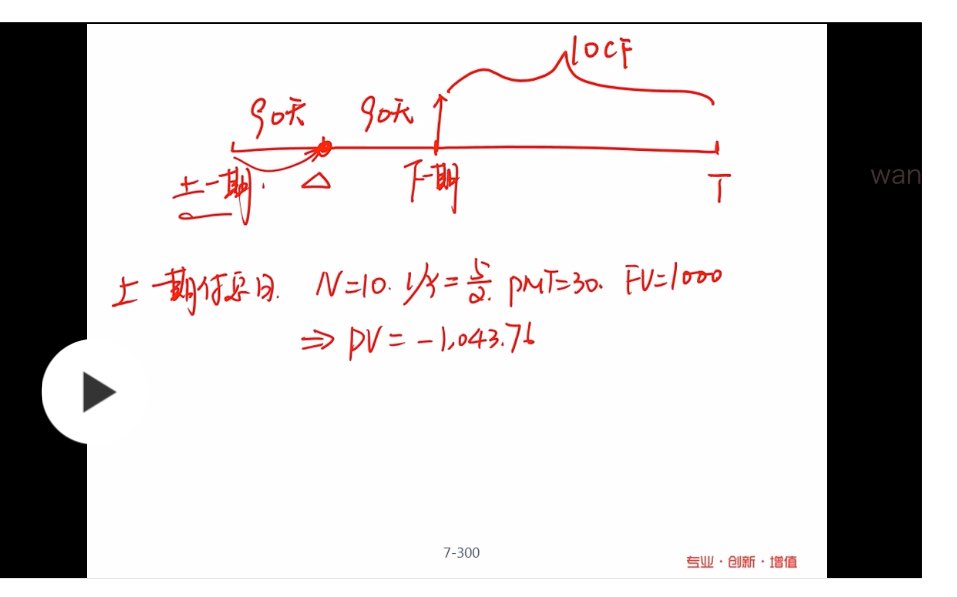 10CF
90天 90天
上一期. △ 下一期 T
wan
上一期付息日. N=10. I/Y=5/2. PMT=30. FV=1000
⇒ PV = -1,043.76
7-300
专业·创新·增值